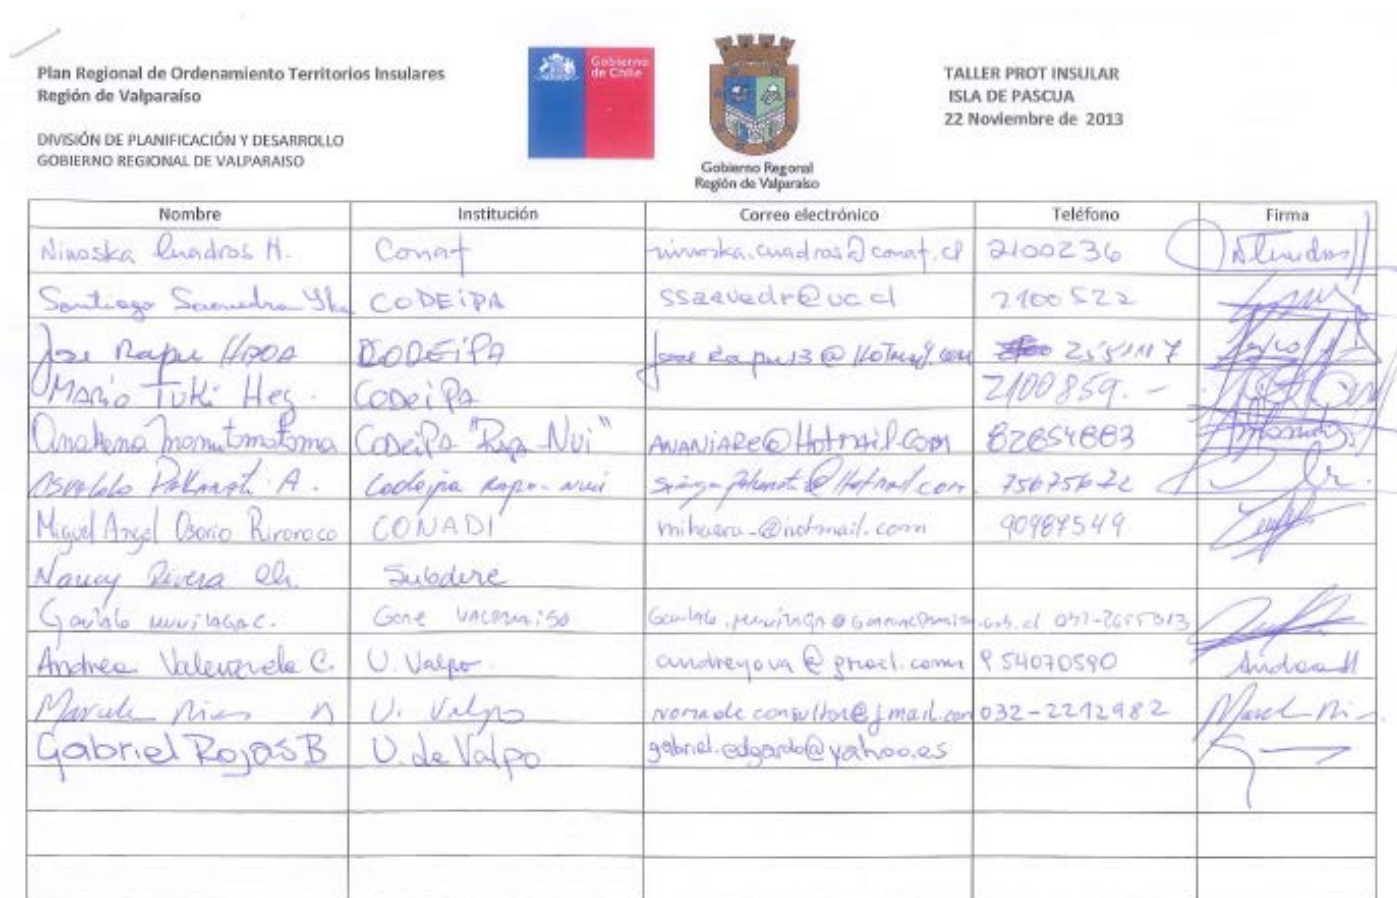 Plan Regional de Ordenamiento Territorios Insulares
Región de Valparaíso
DIVISIÓN DE PLANIFICACIÓN Y DESARROLLO
GOBIERNO REGIONAL DE VALPARAISO
Gobierno
de Chile
Gobierno Regional
Región de Valparaíso
TALLER PROT INSULAR
ISLA DE PASCUA
22 Noviembre de 2013
Nombre Institución Correo electrónico Teléfono Firma
Ninoska Cuadros H. Conaf ninoska.cuadros@conaf.cl 2100236
Santiago Saavedra CODEIPA ssaavedr@uc.cl 2100522
Jose Rapu HAOA CODEIPA
Mario Tuki Hey. CODEIPA 2100859.-
Anakena CODEIPA "Rapa-Nui" ANANIARE@Hotmail.com 82654883
Osvaldo Pakarati A. Codeipa Rapa-nui 75675622
Miguel Angel Osorio Riroroco CONADI @hotmail.com 90987549
Nancy Rivera Ch. Subdere
Gonzalo Munizaga C. Gore Valparaiso
Andrea Valenzuela C. U. Valpo. andreyova@gmail.com 954070590 Andrea
Marcela U. Valpo nomadeconsultor@gmail.com 032-2212982
Gabriel Rojas B U. de Valpo gabriel.edgardo@yahoo.es